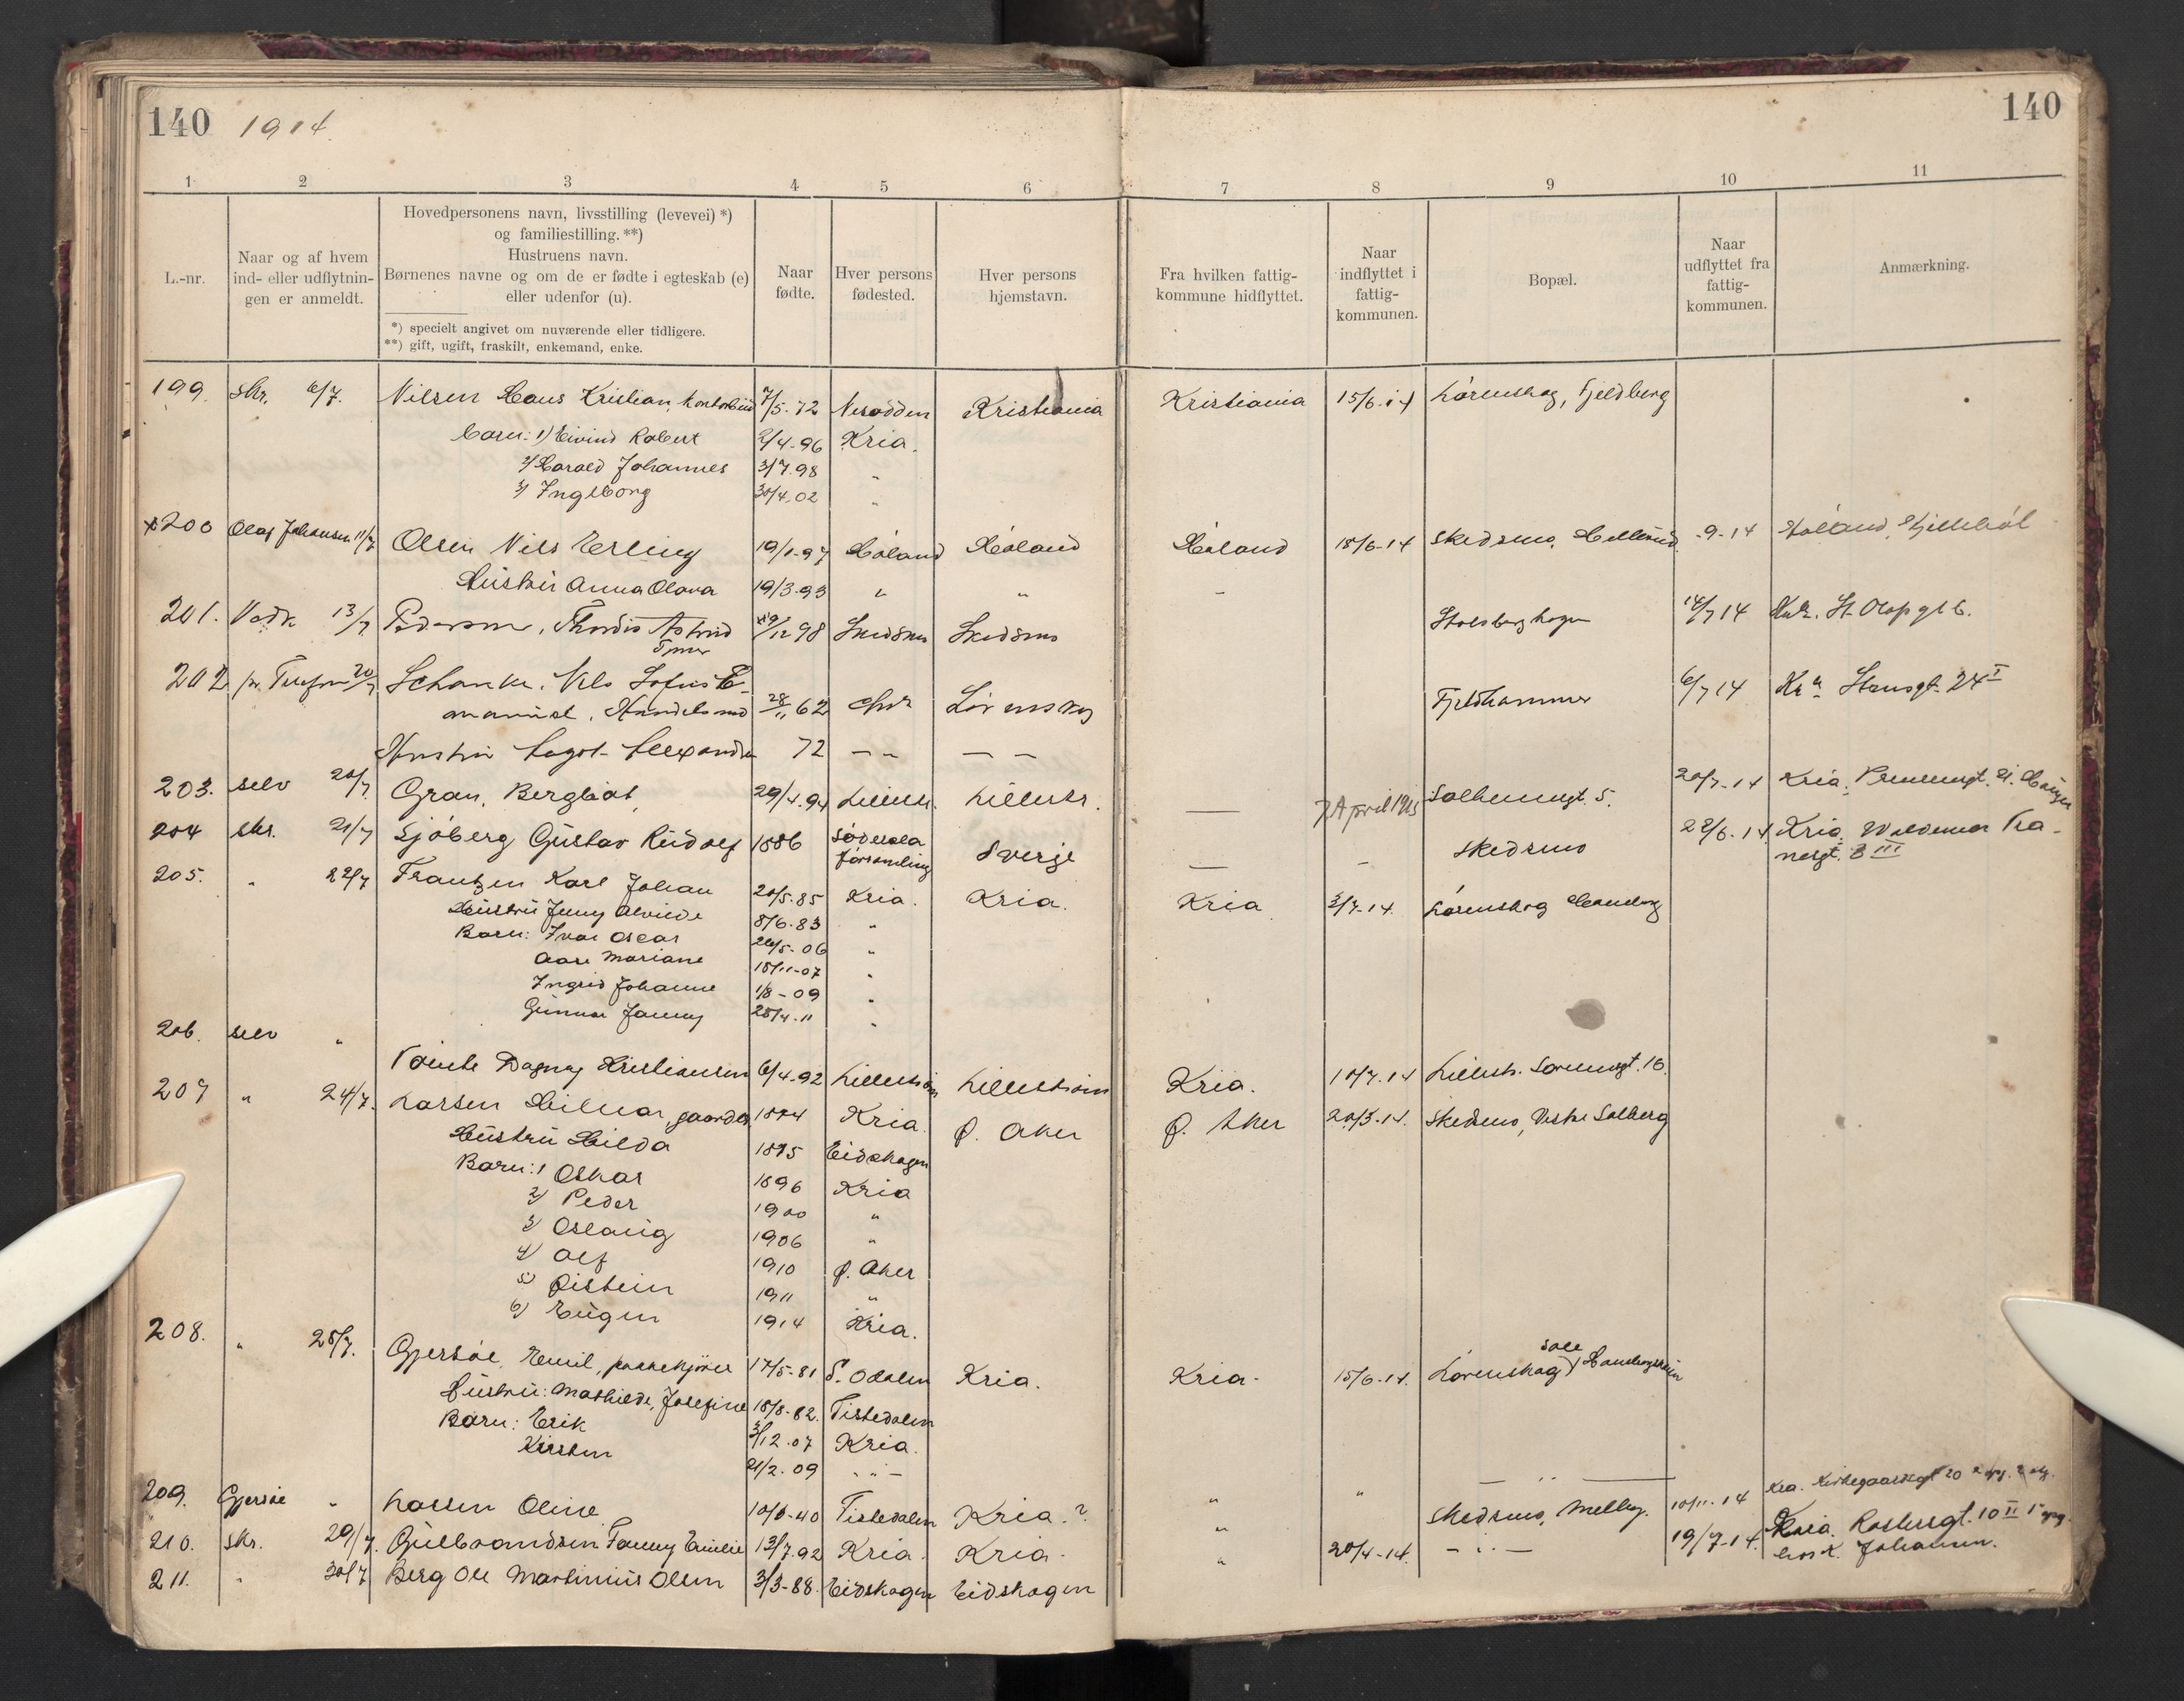 140 1914. 140
1 2 3 4 5 6 7 8 9 10 11
L.-nr.
Naar og af hvem
ind- eller udflytnin-
gen er anmeldt.
Hovedpersonens navn, livsstilling (levevei) *)
og familiestilling. **)
Hustruens navn.
Børnenes navne og om de er fødte i egteskab (e)
eller udenfor (u).
*) specielt angivet om nuværende eller tidligere.
**) gift, ugift, fraskilt, enkemand, enke.
Naar
fødte.
Hver persons
fødested.
Hver persons
hjemstavn.
Fra hvilken fattig-
kommune hidflyttet.
Naar
indflyttet i
fattig-
kommunen.
Bopæl.
Naar
udflyttet fra
fattig-
kommunen.
Anmærkning.
199. skr. 6/7. Nilsen Hans Kristian, kontorbud 7/5-72 Nesodden Kristiania Kristiania 15/6-14 Lørenskog, Fjeldberg
Barn: 1) Eivind Robert 2/4-96 Kria.
2) Harald Johannes 3/7.98 "
3) Ingeborg 30/4.02 "
x200 Olaf Johansen 11/7 Olsen Nils Erling 19/1-97 Høland Høland Høland 18/6-14 Skedsmo, -9-14 Høland,
Hustru Anna Olava 19/3-93 " " -
201. Vedk 13/7 Pedersen, Thordis Astrid 29/12 98 Skedsmo Skedsmo Stalsberghagen 14/7 14 St. Olafsgt 6.
202 pr. Telefon 20/7 Schanke, Nils Sofus E-
manuel, Handelsmd 28/11 62 Lørenskog Fjeldhammer 6/7 14 Kra Stensgt. 24 I
Hustru Hagot Alexandra 72 — — — —
203. selv 20/7. Gran, Bergliot, 29/4.94 Lillestr. Lillestr. — 7 April 1915 Solheimsgt. 5. 20/7-14 Kria.
204 skr. 21/7 Sjöberg Gustav Rudolf 1886 Söderala
församling Sverje — - Skedsmo 22/6-14 Kria. Waldemar Tra-
nesgt. 3 III
205. " 22/7 Frantzen Karl Johan 20/5-85 Kria. Kria. Kria 3/7-14. Lørenskog Hauberg
Hustru Jenny Alvilde 8/6-83 "
Barn: Ivar Oscar 26/5-06 "
Aase Mariane 15/11-07 "
Ingrid Johanne 1/8-09 "
Gunnar Janny 25/4-11 "
206. selv " Tømte Dagny Kristiansen 6/4-92 Lillestrøm Lillestrøm Kria. 10/7-14 Lillestr. Sørumsgt. 16.
207 " 24/7. Larsen Hilmar, gaardbr. 1874 Kria. Ø. Aker Ø. Aker 20/3-14. Skedsmo, Vestre Solberg
Hustru Hilda 1875 Eidskogen
Barn: 1 Oskar 1896 Kria
2) Peder 1900 "
3) Oslaug 1906 "
4) Alf 1910 Ø. Aker
5) Øistein 1911 "
6) Eugen 1914 Kria.
208. " 25/7. Gjersøe, Emil, pakkekjører 17/5-81 S. Odalen Kria. Kria. 15/6-14. Lørenskog,
Hustru: Mathilde, Josefine 18/8-82. Tistedalen
Barn: Erik 3/12.07 Kria.
Kirsten 21/2.09 " " —
209. Gjersøe " Larsen Oline 10/6-40 Tistedalen Kria. ? " " — " — Kra. Kirkegaardsgt 20
210. skr. 29/7. Gulbrandsen Fanny Emilie 13/7.92 Kria. Kria. " Skedsmo, Melby. 10/11-14 Kria. Rostedsgt. 10 II
211. " 30/7 Berg Ole Martinius Olsen 3/3-88. Eidskogen Eidskogen " 20/4-14. - " — 19/7-14. hos K. Johansen.